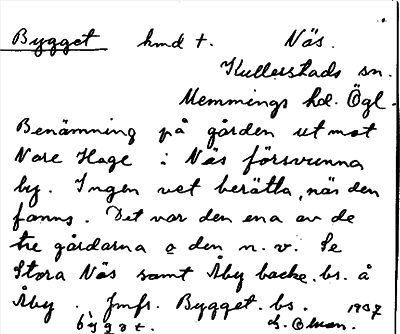 Bygget hmd t. Näs.
Kullerstads sn.
Memmings hd. Ögl.
Benämning på gården ut mot
Nore Hage i Näs försvunna
by. Ingen vet berätta, när den
fanns. Det var den ena av de
tre gårdarna o den n. v. Se
Stora Näs samt Åby backe. bs. å
Åby. Jmfr. Bygget. bs. 1937
býgət.